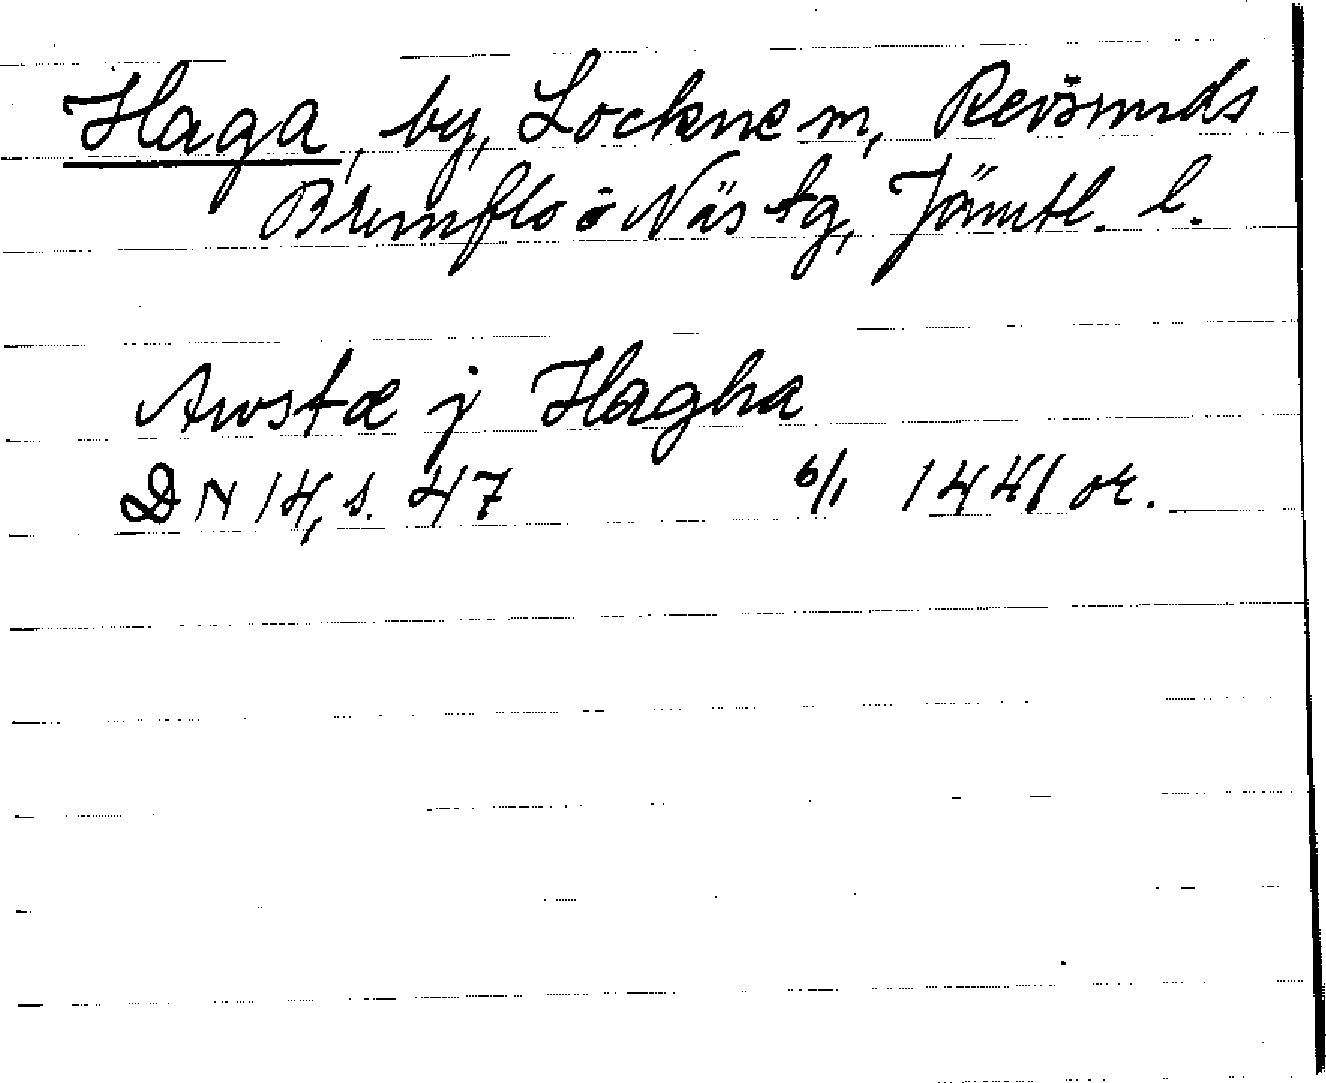 Haga, by, Lockne sn, Revsunds
Brunflo o Näs tg, Jämtl. l.
Awstæ j Hagha
DN 14, s. 47 6/1 1441 or.